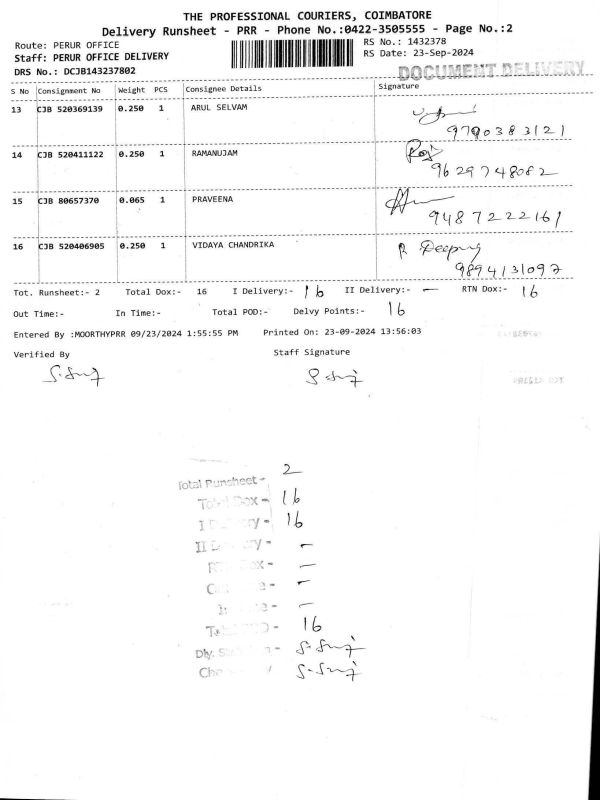 THE PROFESSIONAL COURIERS, COIMBATORE
Delivery Runsheet - PRR - Phone No.:0422-3505555 - Page No.:2
Route: PERUR OFFICE RS No.: 1432378
Staff: PERUR OFFICE DELIVERY RS Date: 23-Sep-2024
DRS No.: DCJB143237802 DOCUMENT DELIVERY
S No Consignment No Weight PCS Consignee Details Signature
13 CJB 520369139 0.250 1 ARUL SELVAM
9790383121
14 CJB 520411122 0.250 1 RAMANUJAM
9629748082
15 CJB 80657370 0.065 1 PRAVEENA
9487222161
16 CJB 520406905 0.250 1 VIDAYA CHANDRIKA
9894131097
Tot. Runsheet:- 2 Total Dox:- 16 I Delivery:- 16 II Delivery:- — RTN Dox:- 16
Out Time:- In Time:- Total POD:- Delvy Points:- 16
Entered By :MOORTHYPRR 09/23/2024 1:55:55 PM Printed On: 23-09-2024 13:56:03
Verified By Staff Signature
Total Runsheet - 2
Total Dox - 16
I Delivery - 16
II Delivery - —
—
—
—
16